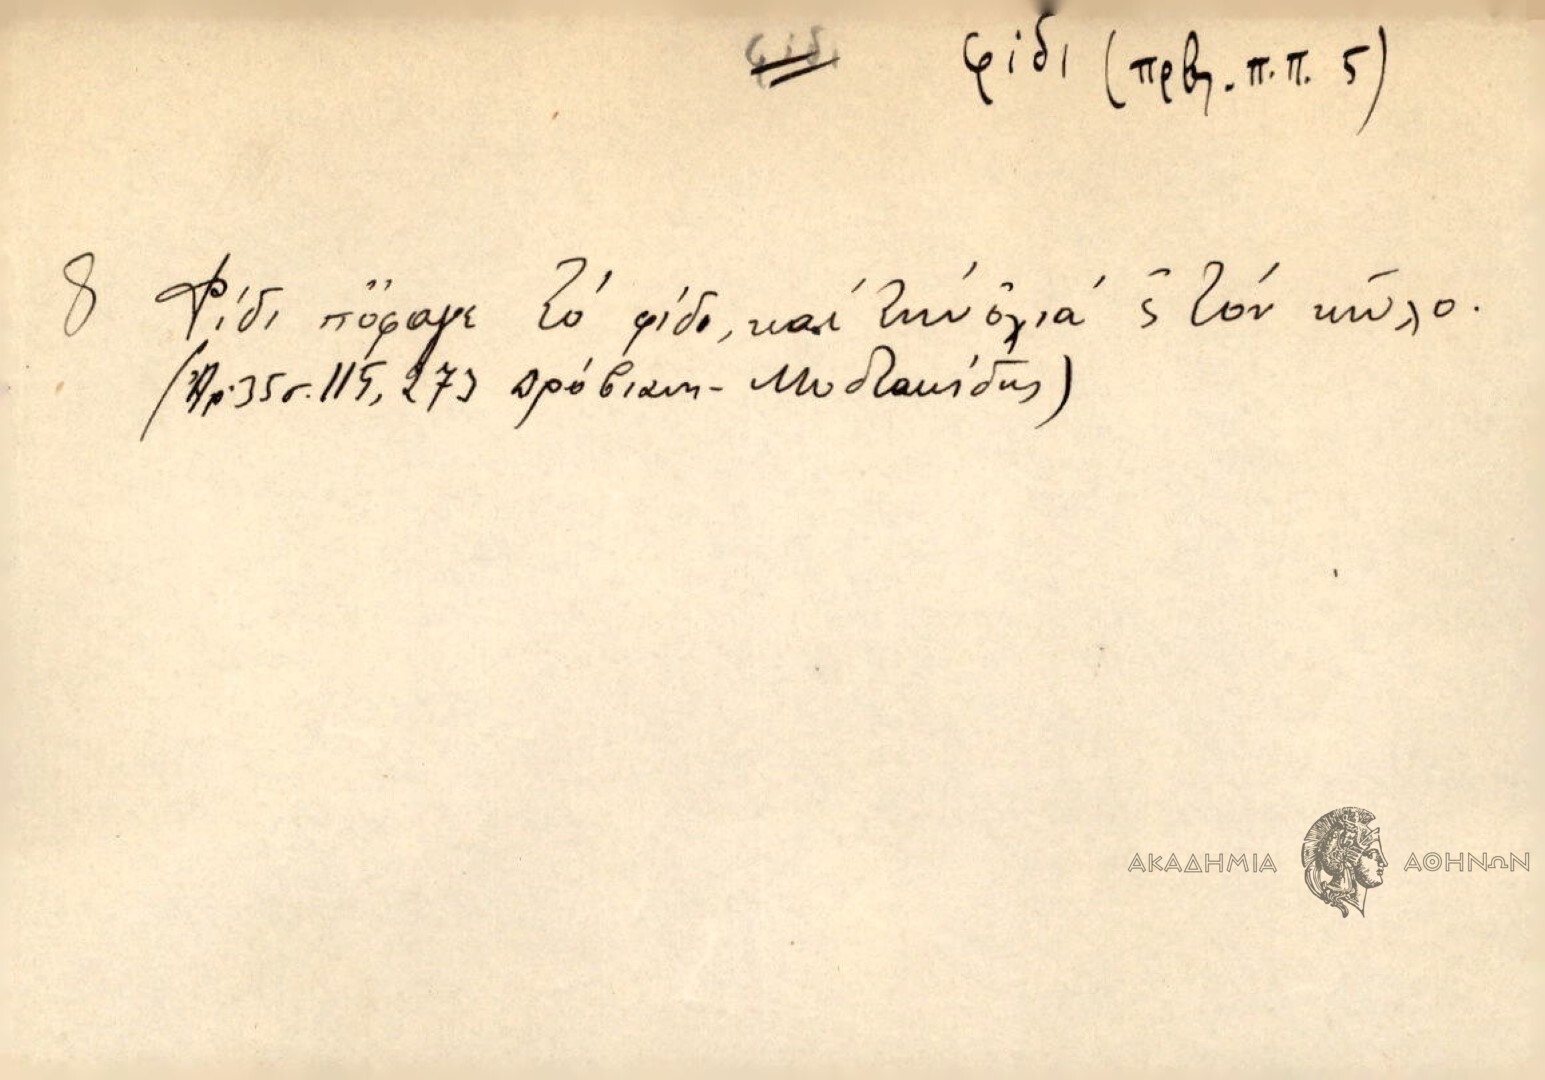 φίδι φίδι (πρβλ. π.π. 5)
8 Φίδι πὄφαγε τό φίδι, καί τήν ὀχιά ς τόν κῶλο.
(Ἀρ. 35 σ. 115, 273 Δρόβιανη - Μυστακίδης)
ΑΚΑΔΗΜΙΑ ΑΘΗΝΩΝ